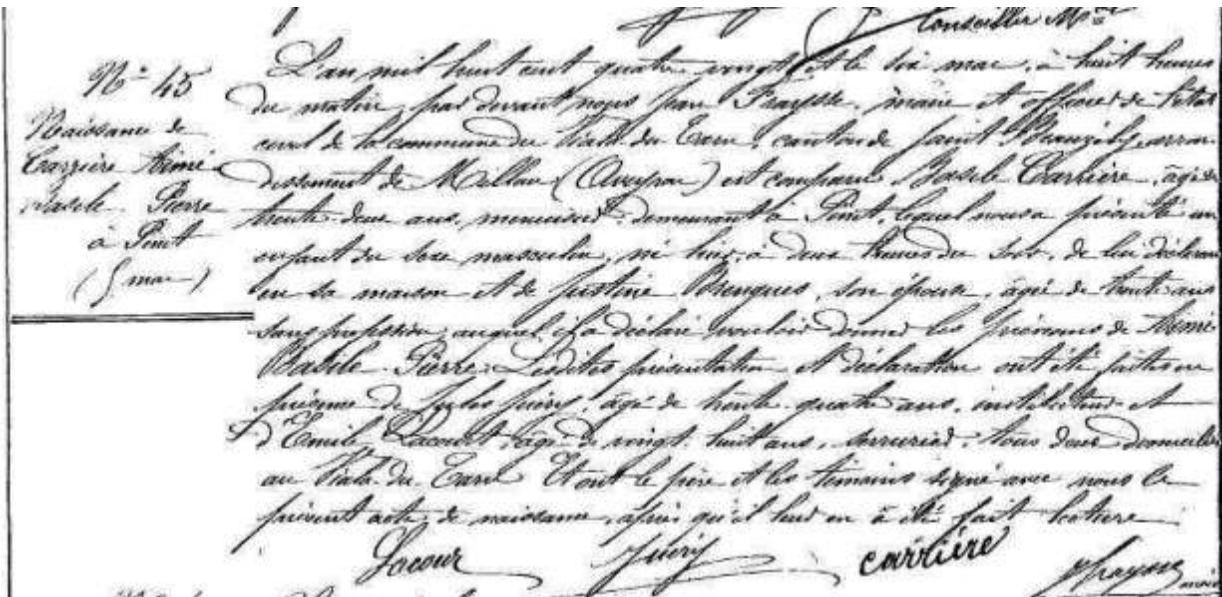 Conseiller M
N° 45
Naissance de
Carrière Rémi
Basile Pierre
à Pinet
(5 mai)
L'an mil huit cent quatre vingt et le six mai, à huit heures
du matin, par devant nous Jean Fraysse, maire et officier de l'état
civil de la commune du Viala du Tarn, canton de Saint Beauzély, arron
dissement de Millau (Aveyron) est comparu Basile Carrière, âgé de
trente deux ans, menuisier, demeurant à Pinet, lequel nous a présenté un
enfant du sexe masculin, né hier, à deux heures du soir, de lui déclarant
en sa maison et de Justine Brengues, son épouse, âgée de trente ans
sans profession, auquel il a déclaré vouloir donner les prénoms de Rémi
Basile Pierre. Lesdites présentation et déclaration ont été faites en
présence de Jules, âgé de trente quatre ans, instituteur et
d'Emile Lacourt, âgé de vingt huit ans, serrurier, tous deux domiciliés
au Viala du Tarn. Et ont le père et les témoins signé avec nous le
présent acte de naissance, après qu'il leur en a été fait lecture
Lacour carrière Fraysse maire